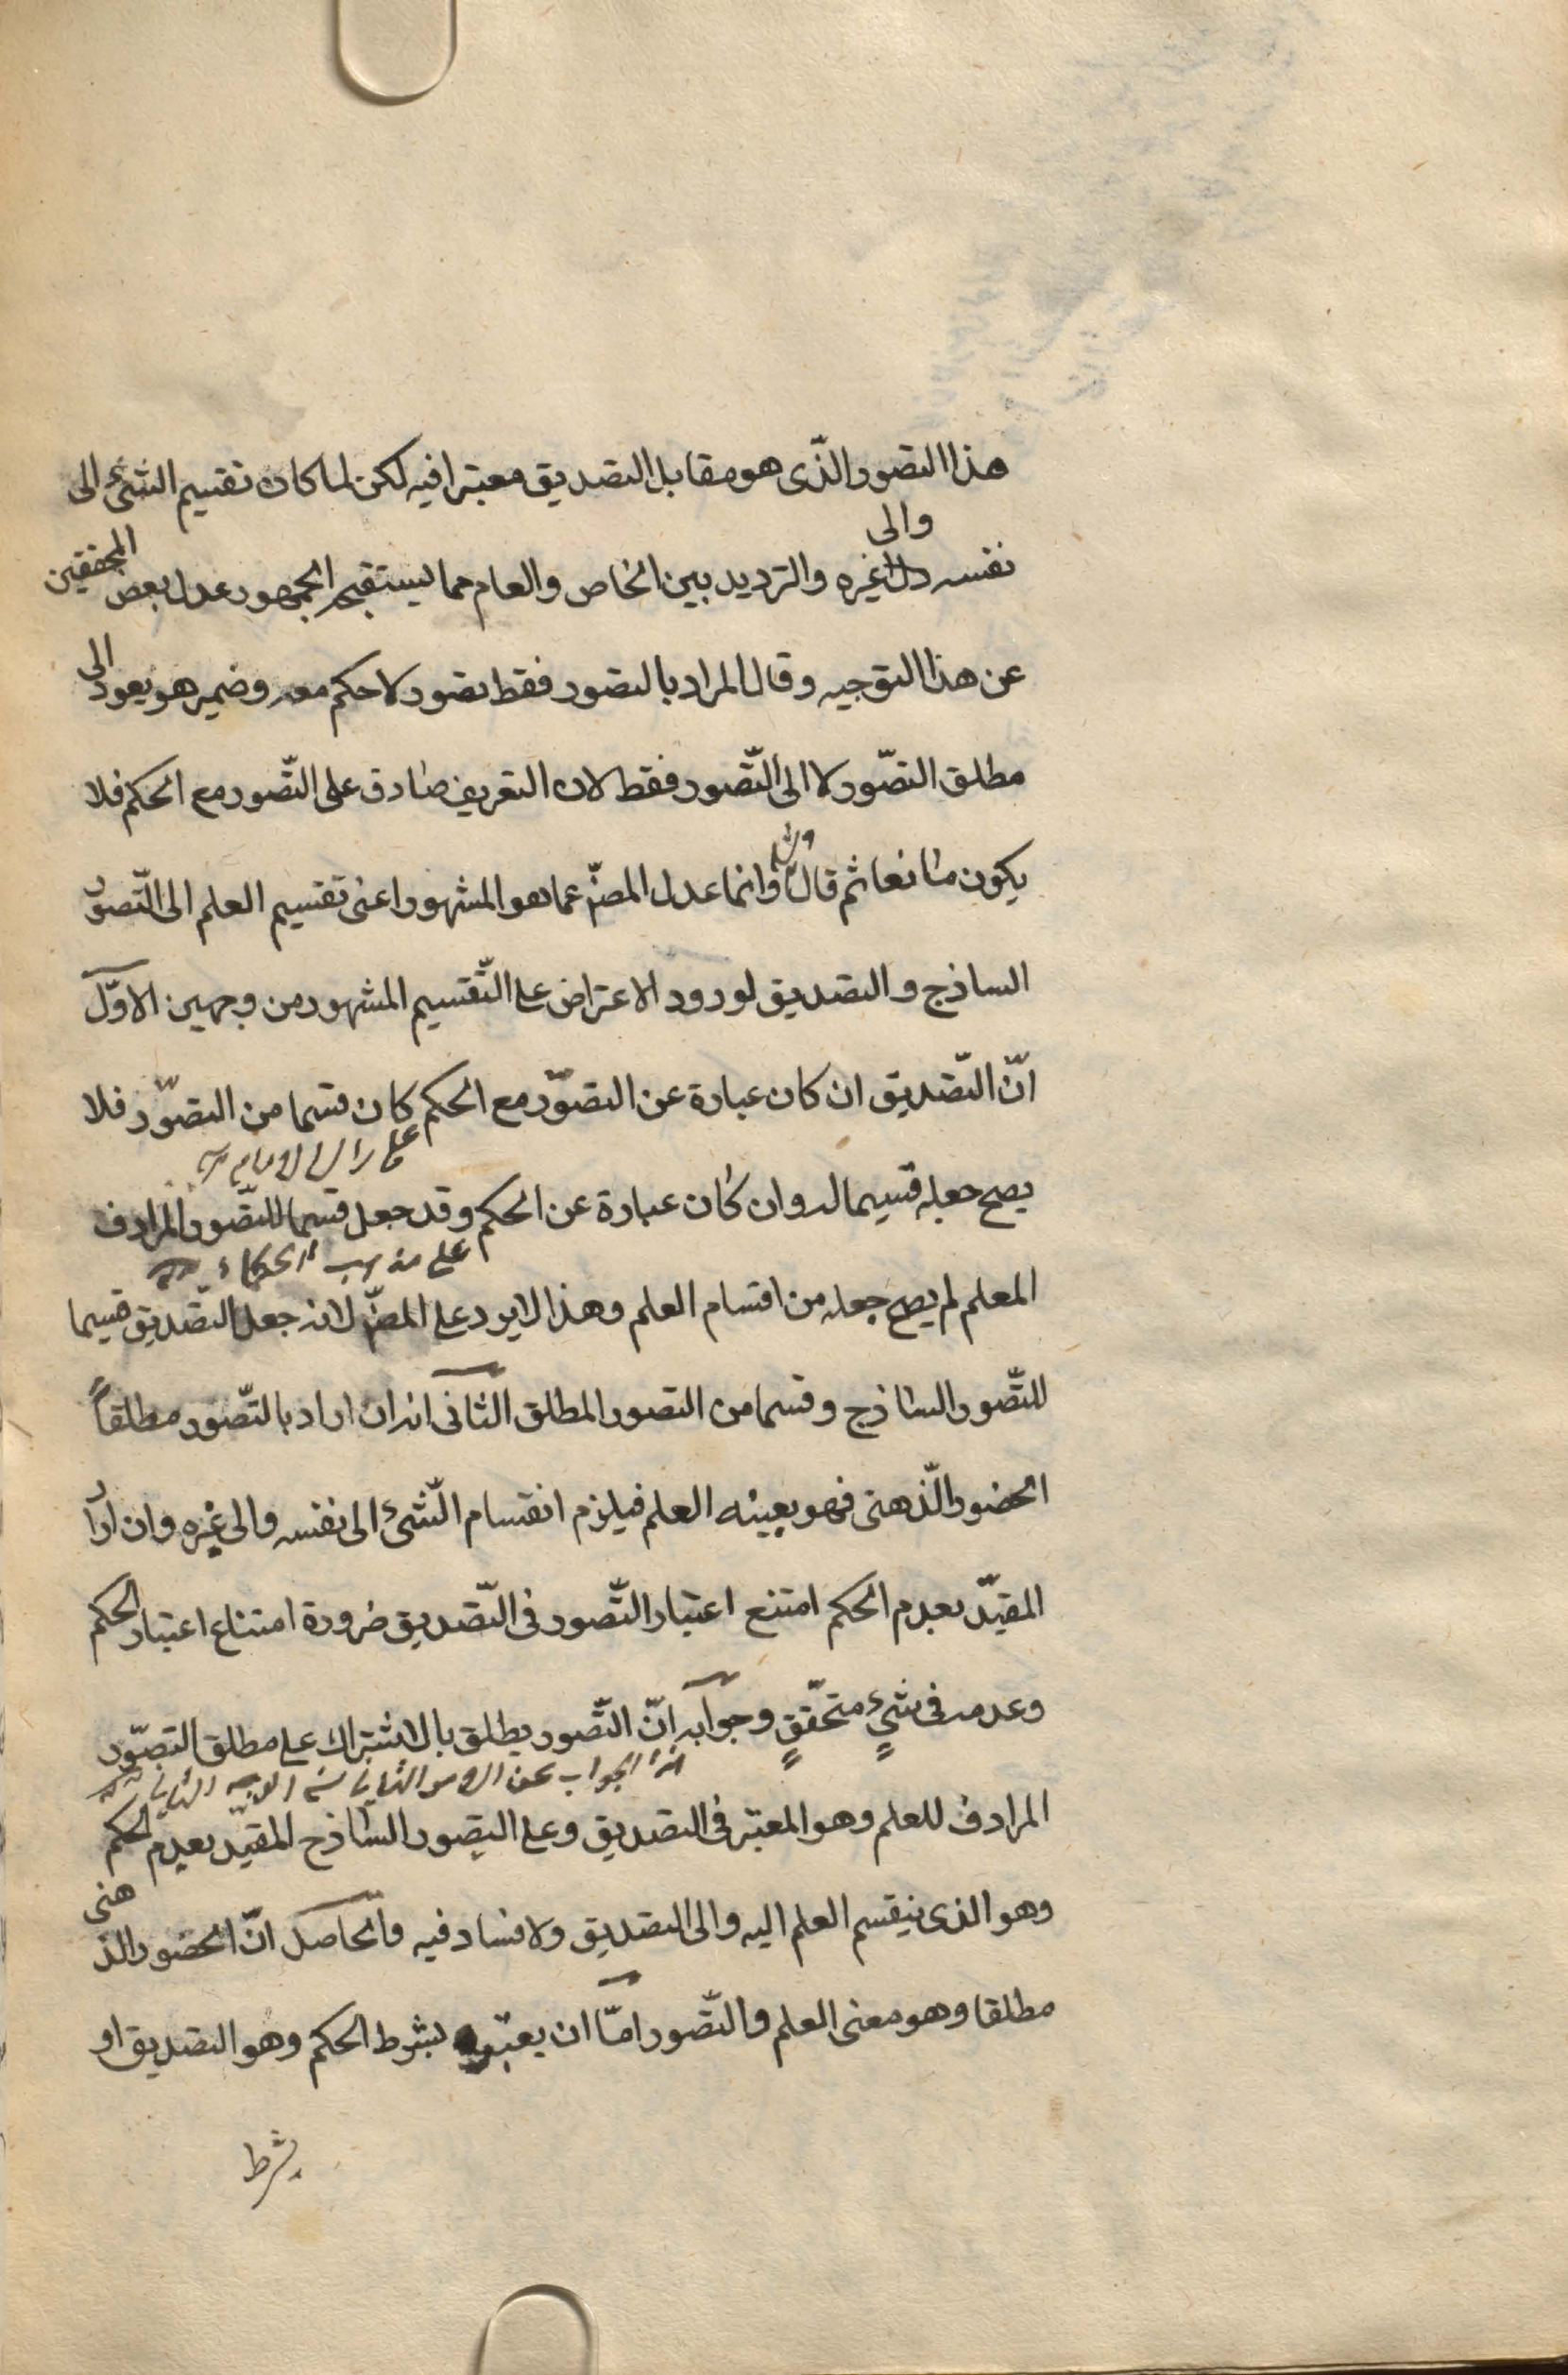 هذا التصور الذّى هو مقابل التصديق معتبرا فيه لكن لما كان تقسيم الشئ الى
والى
نفسه غيره والترديد بين الخاص والعام مما يستقبحه الجمهور عدل بعض المحققين
عن هذا التوجيه وقال المراد بالتصور فقط تصور لا حكم معه وضمير هو يعود الى
مطلق التصّور لا الى التّصور فقط لان التعريف صادق على التّصور مع الحكم فلا
يكون مانعا ثم قال وانما عدل المصنّ عما هو المشهور اعنى تقسيم العلم الى التّصوّر
الساذج والتصديق لورود الاعتراض على التّقسيم المشهور من وجهين الاوّل
انّ التّصديق ان كان عبارة عن التصوّر مع الحكم كان قسما من التصوّر فلا
على راى الامام
يصح جعله قسيما له وان كان عبارة عن الحكم وقد جعل قسما للتّصور المرادف
على مذهب الحكماء
المعلم لم يصح جعله من اقسام العلم وهذا لا يرد على المصنّ لانه جعل التّصديق قسيما
للتّصور الساذج وقسما من التصور المطلق الثانى انه ان اراد بالتّصور مطلقاً
الحضور الّذهنى فهو بعينه العلم فيلزم انقسام الّشئ الى نفسه والى غيره وان اراد
المقيّد بعدم الحكم امتنع اعتبار التّصور فى التّصديق ضرورة امتناع اعتبار الحكم
وعدمه فى شئٍ متحقّقٍ وجوابه انّ التّصور يطلق بالاشتراك على مطلق التصّور
هذا الجواب عن الامر الثانى الوجه الثانى
المرادف للعلم وهو المعتبر فى التصديق وعلى التصور الساذج المقيّد بعدم الحكم
وهو الذى ينقسم العلم اليه والى التصديق ولا فساد فيه والحاصل انّ الحضور الذهنى
مطلقا وهو معنى العلم والتّصور امّا ان يعتبر بشرط الحكم وهو التصديق او
بشرط